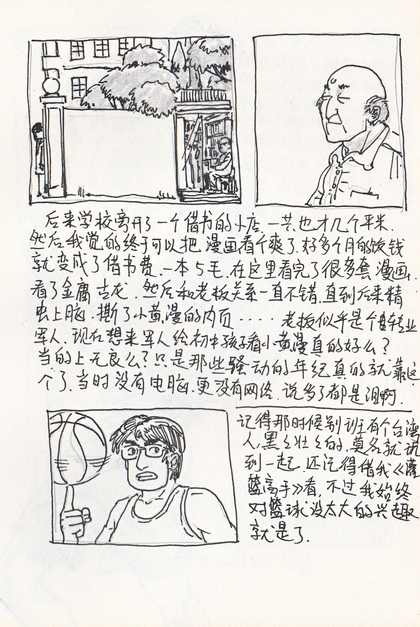 后来学校离开了一个借书的小店.一共也才几个平米.
然后我觉的终于可以把漫画看个爽了.好多个月的饭钱
就变成了借书费.一本5毛.在这里看完了很多套漫画.
看了金庸古龙.然后和老板关系一直不错.直到后来精
虫上脑.撕了小黄漫的内页····老板似乎是个转业
军人.现在想来军人给初中孩子看小黄漫真的好么?
当的上无良么?只是那些骚动的年纪真的就靠这
个了.当时没有电脑.更没有网络.说多了都是泪啊.
记得那时候别班有个台湾
人.黑黑壮壮的.莫名就说
到一起.还记得借我《灌
篮高手》看.不过我始终
对篮球没太大的兴趣
就是了.